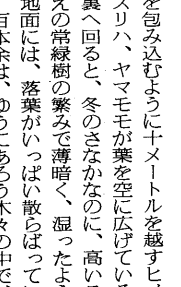 を包み込むように十メートルを越すヒメ
スリハ、ヤマモモが葉を空に広げている
裏へ回ると、冬のさなかなのに、高い
えの常緑樹の繁みで薄暗く、湿ったよう
地面には、落葉がいっぱい散らばって
百本余は、ゆうにあろう木々の中で